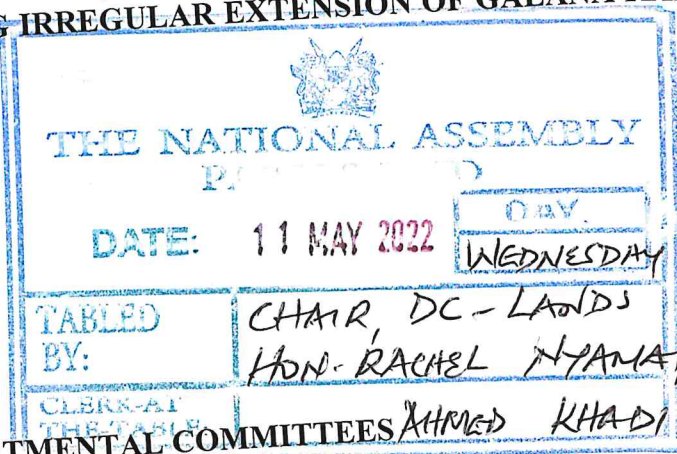 IRREGULAR EXTENSION OF
THE NATIONAL ASSEMBLY
DATE: 11 MAY 2022
DAY.
WEDNESDAY
TABLED BY: CHAIR, DC - LANDS
HON. RACHEL NYAMA
CLERK-AT THE-TABLE AHMED KHADI
TMENTAL COMMITTEES